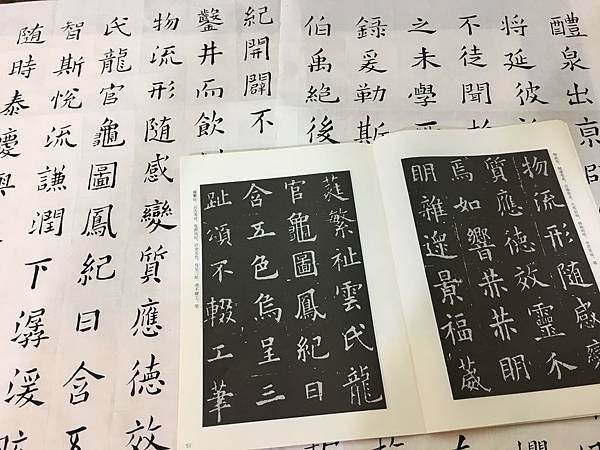 醴泉出京
将延彼
不徒聞
之未學
録爰勒斯
伯禹絶後
紀開闢不
鑿井而飲
物流形随感變質應徳效
氏龍官龜圖鳳紀日含五
智斯悅流謙潤下潺湲
随時泰慶與
物流形随感變
質應德效靈不
焉如響赫赫明
明雜遝景福葳
蕤繁祉雲氏龍
官龜圖鳳紀日
含五色烏呈三
趾頌不輟工筆